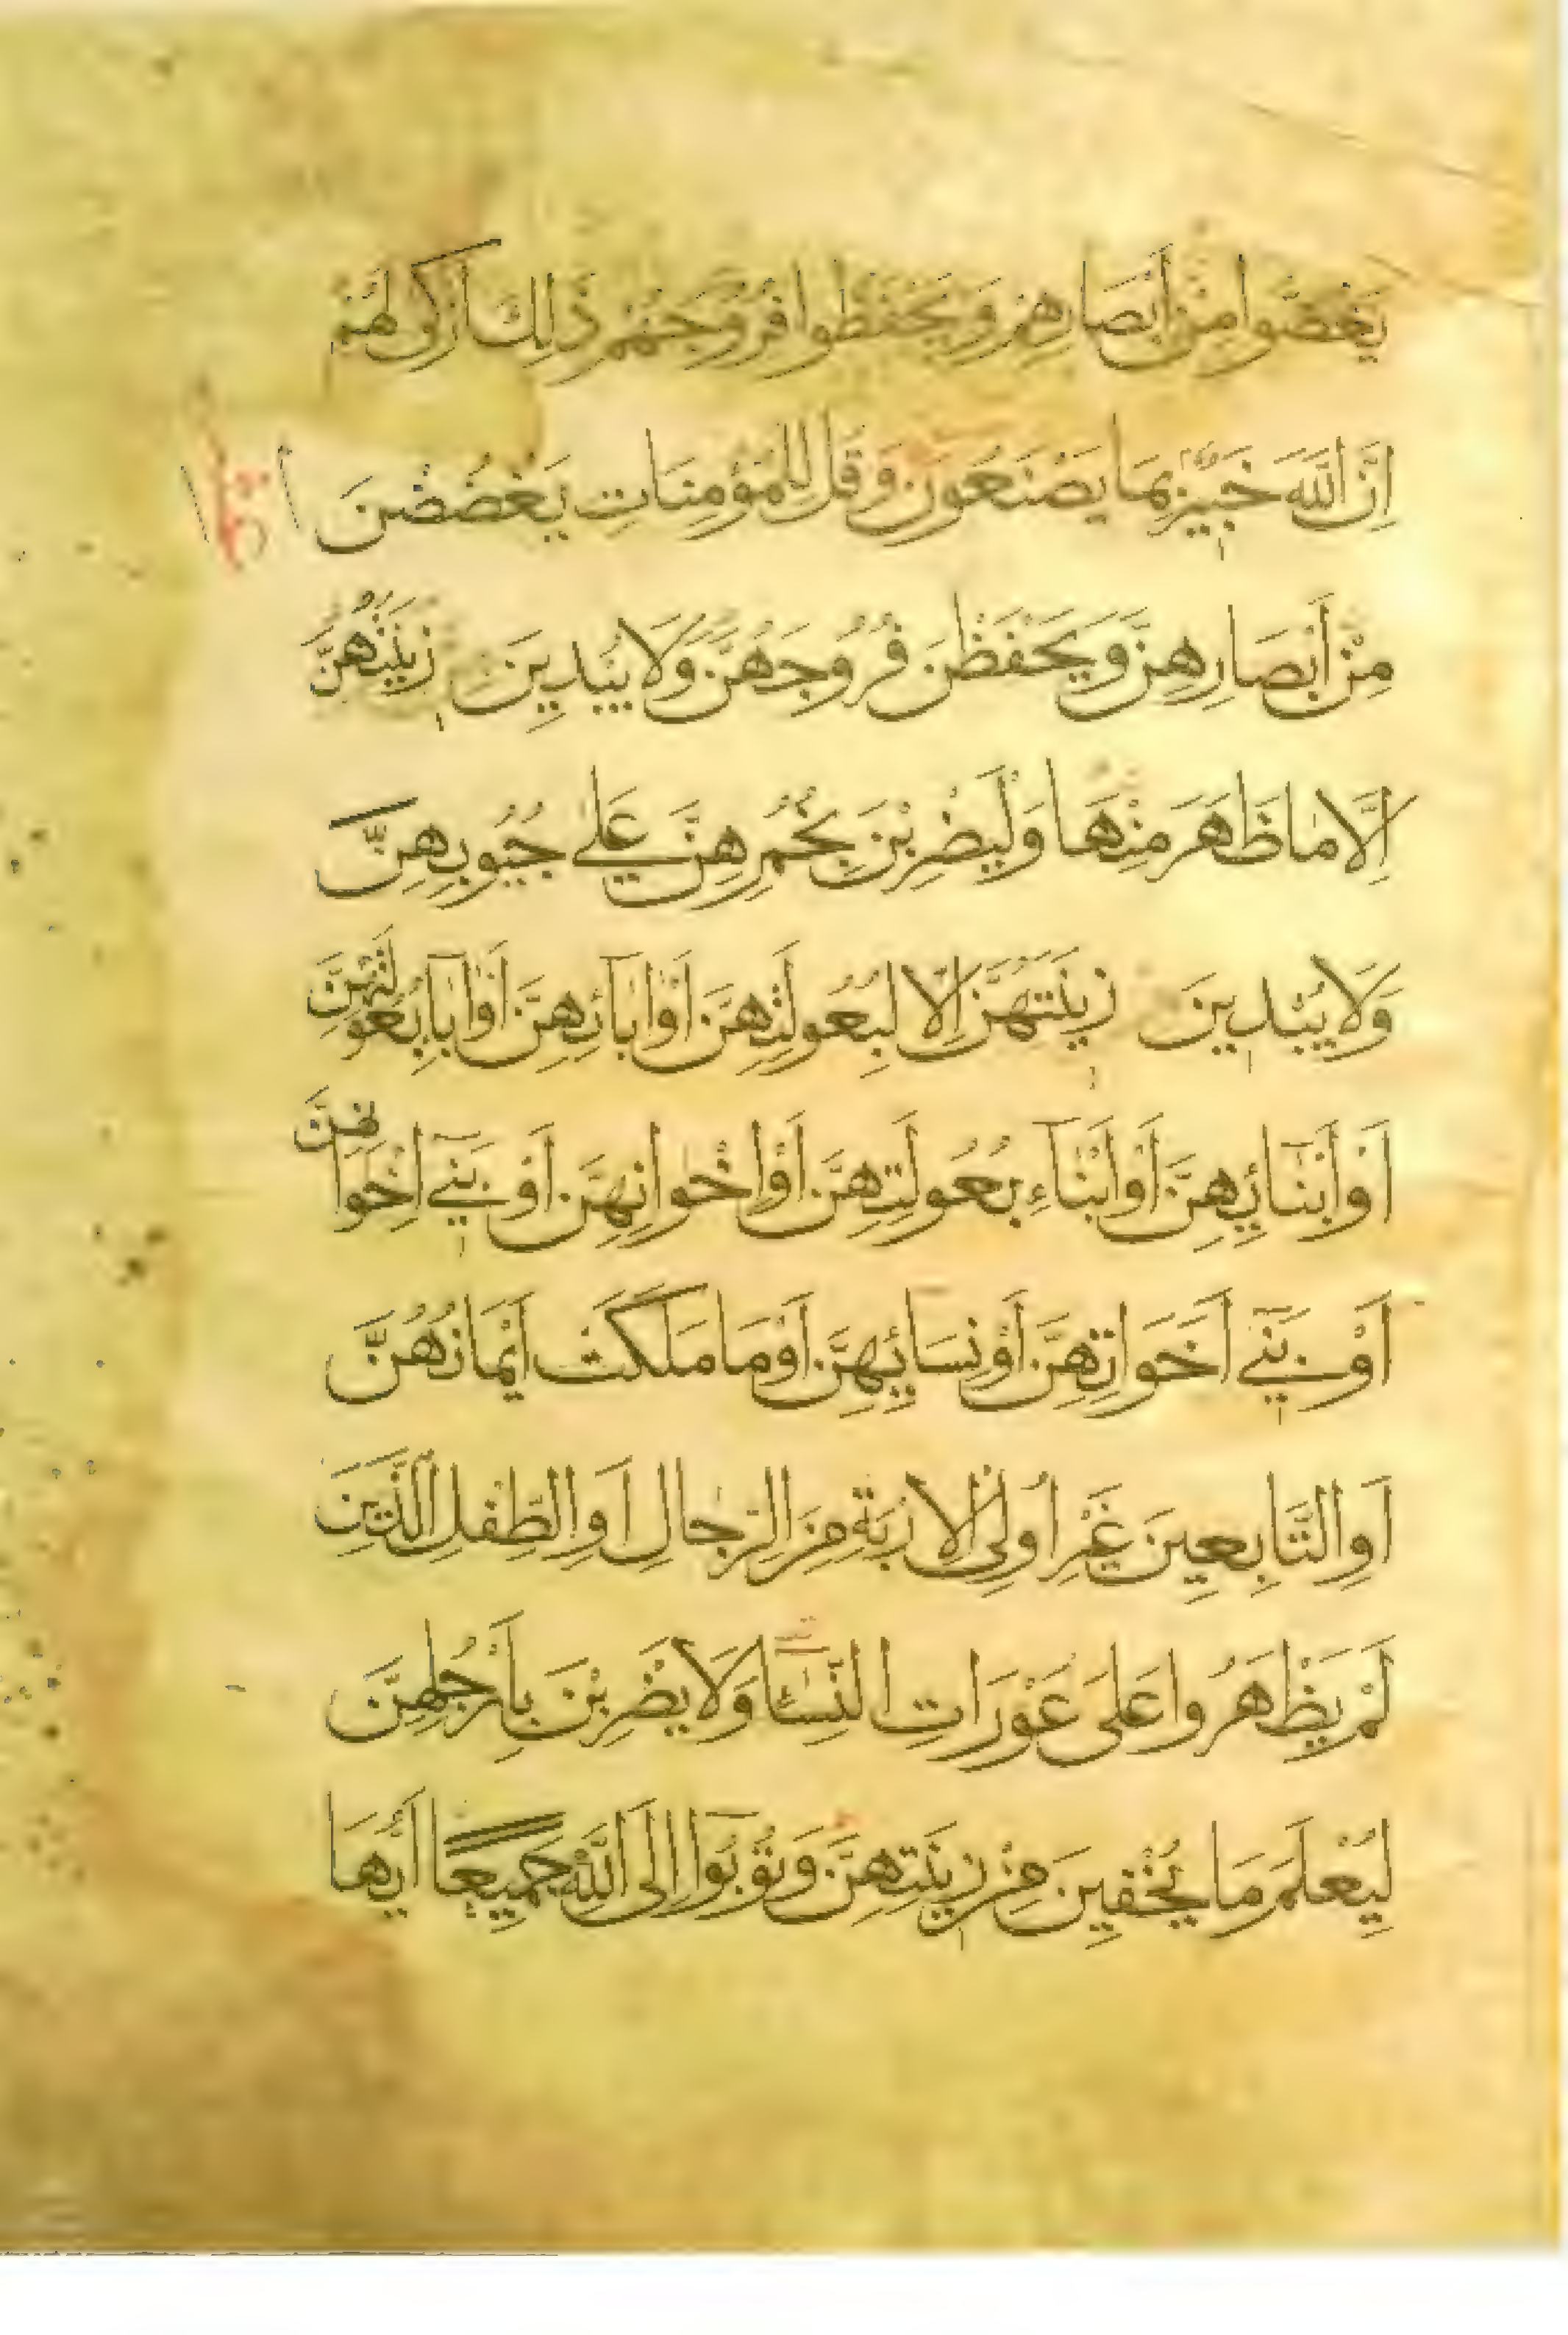 يَغُضُّوا مِنْ أَبْصَارِهِمْ وَيَحْفَظُوا فُرُوجَهُمْ ذَلِكَ أَزْكَى لَهُمْ
اِنَّ اللَّهَ خَبِيرٌ بِمَا يَصْنَعُونَ وَقُل لِلْمُؤْمِنَاتِ يَغْضُضْنَ
مِنْ أَبْصَارِهِنَّ وَيَحْفَظْنَ فُرُوجَهُنَّ وَلَا يُبْدِينَ زِينَتَهُنَّ
اِلَّا مَا ظَهَرَ مِنْهَا وَلْيَضْرِبْنَ بِخُمُرِهِنَّ عَلَى جُيُوبِهِنَّ
وَلَا يُبْدِينَ زِينَتَهُنَّ اِلَّا لِبُعُولَتِهِنَّ اَوْ اٰبَآئِهِنَّ اَوْ اٰبَآءِ بُعُولَتِهِنَّ
اَوْ أَبْنَآئِهِنَّ اَوْ اَبْنَآءِ بُعُولَتِهِنَّ اَوْ اِخْوَانِهِنَّ اَوْ بَنِيٓ اِخْوَانِهِنَّ
اَوْ بَنِيٓ اَخَوَاتِهِنَّ اَوْ نِسَائِهِنَّ اَوْ مَا مَلَكَتْ اَيْمَانُهُنَّ
اَوِ التَّابِعِينَ غَيْرِ اُولِي الْاِرْبَةِ مِنَ الرِّجَالِ اَوِ الطِّفْلِ الَّذِينَ
لَمْ يَظْهَرُوا عَلَى عَوْرَاتِ النِّسَآءِ وَلَا يَضْرِبْنَ بِاَرْجُلِهِنَّ
لِيُعْلَمَ مَا يُخْفِينَ مِنْ زِينَتِهِنَّ وَتُوبُوٓا اِلَى اللَّهِ جَمِيعًا اَيُّهَا